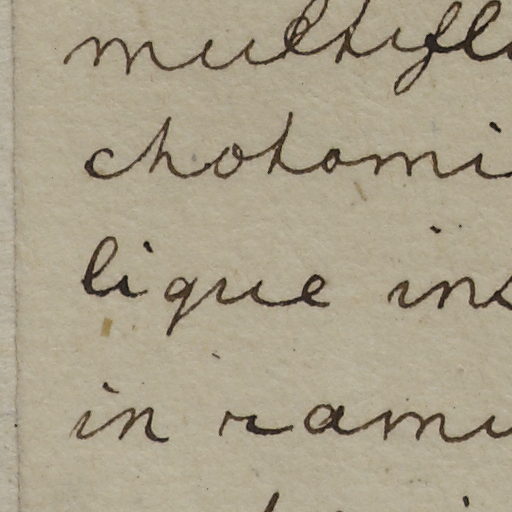 multifl
chotomi
lique ins
in ramu